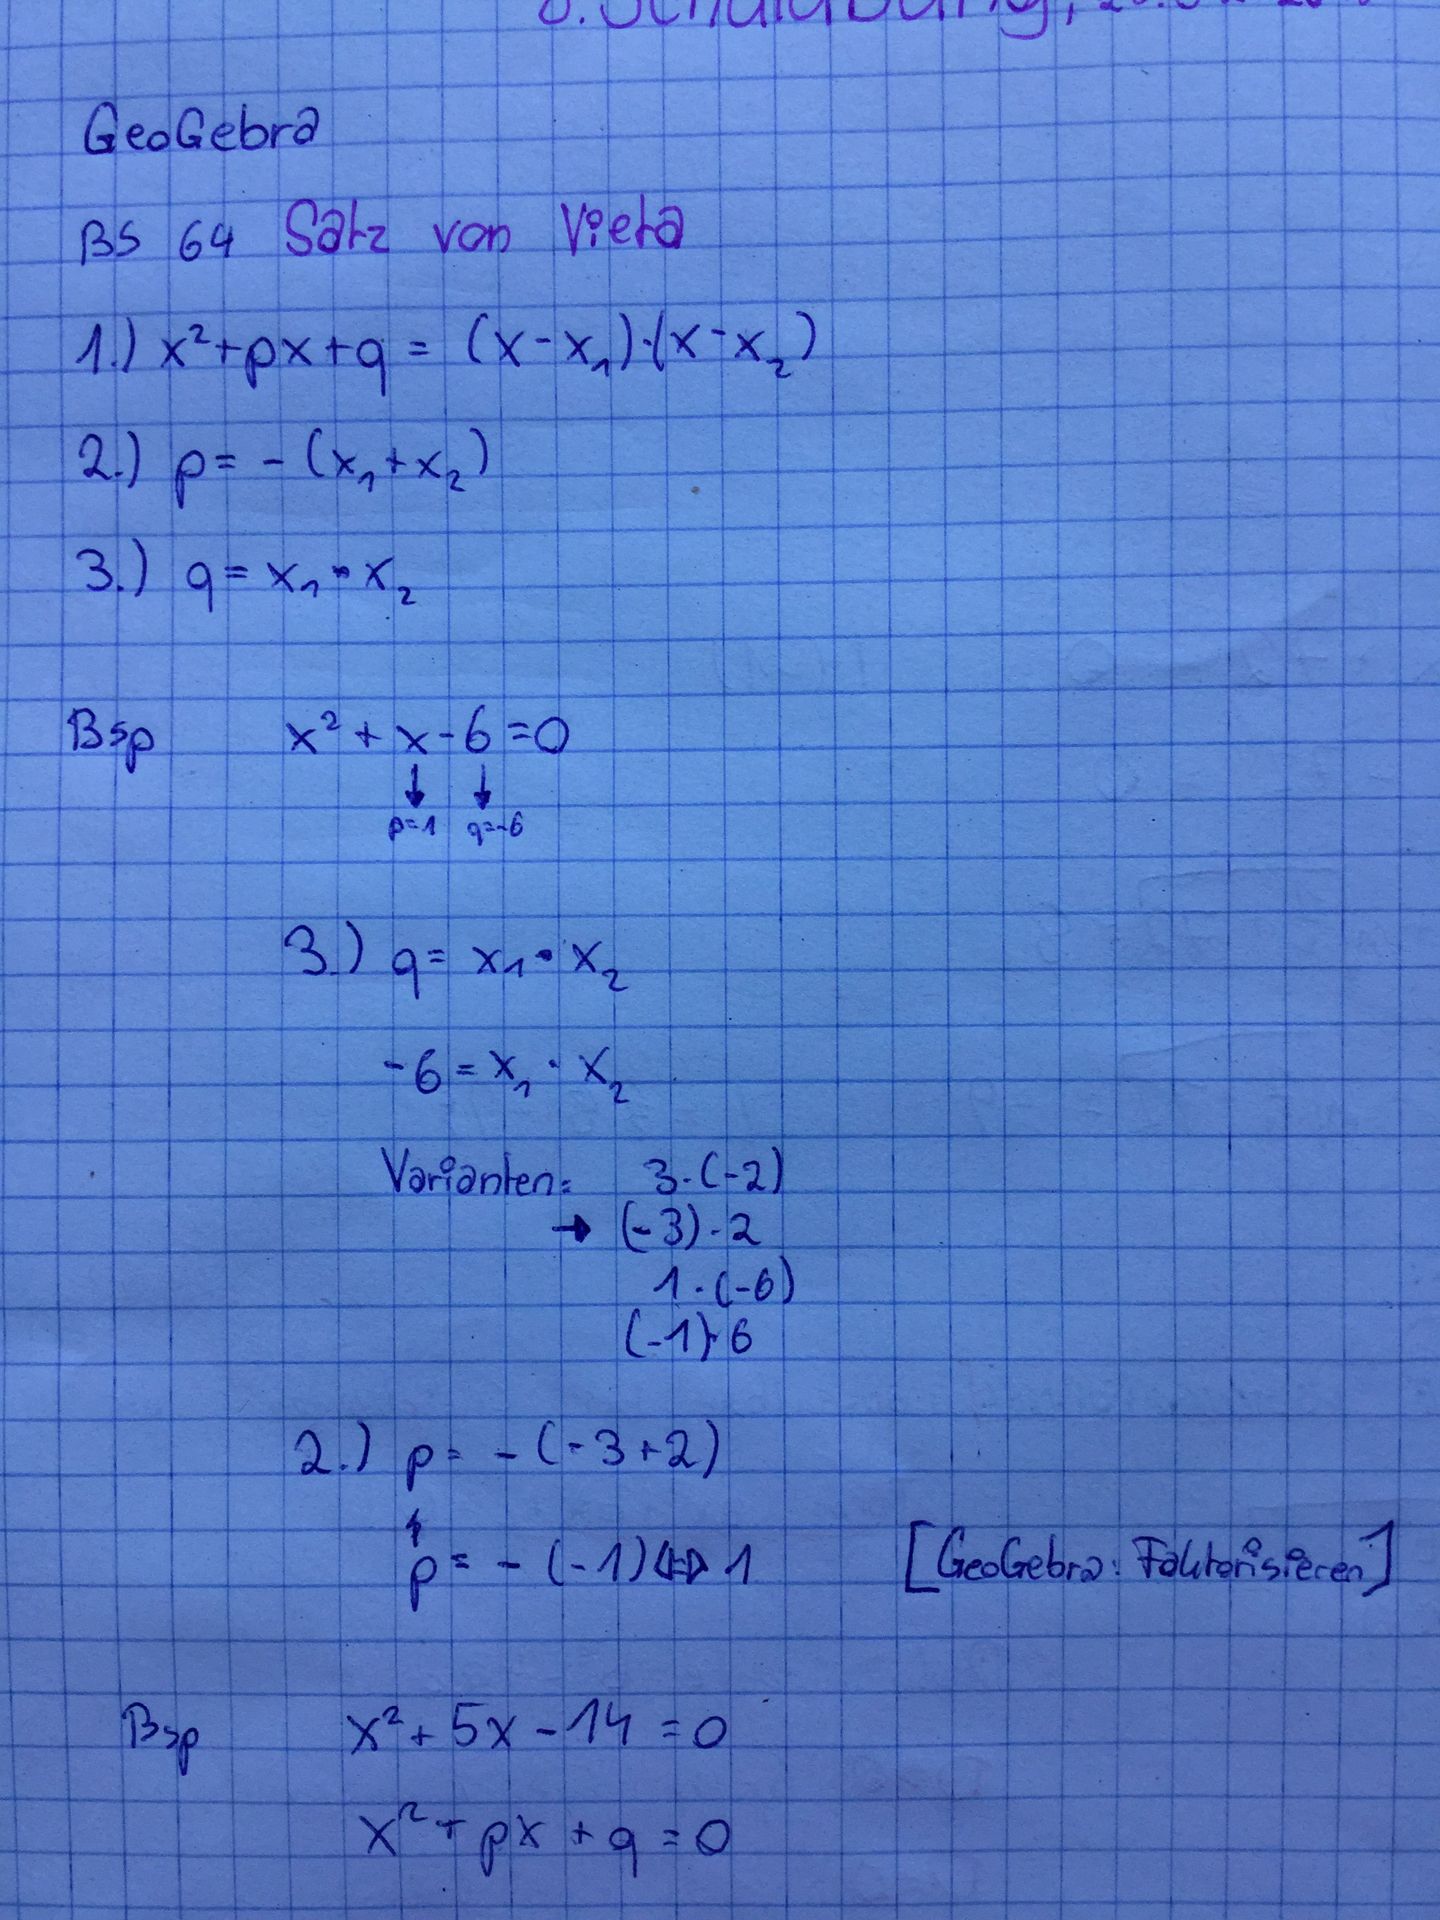 8. Schularbeitung,
GeoGebra
BS 64 Satz von Vieta
1.) x²+px+q = (x-x₁)·(x-x₂)
2.) p= -(x₁+x₂)
3.) q= x₁·x₂
Bsp x² + x-6=0
↓ ↓
p=1 q=-6
3.) q= x₁·x₂
-6=x₁·x₂
Varianten: 3·(-2)
→ (-3)·2
1·(-6)
(-1)·6
2.) p= -(-3+2)
p= -(-1)⇔1 [GeoGebra: Faktorisieren]
Bsp x²+5x-14=0
x²+px+q=0